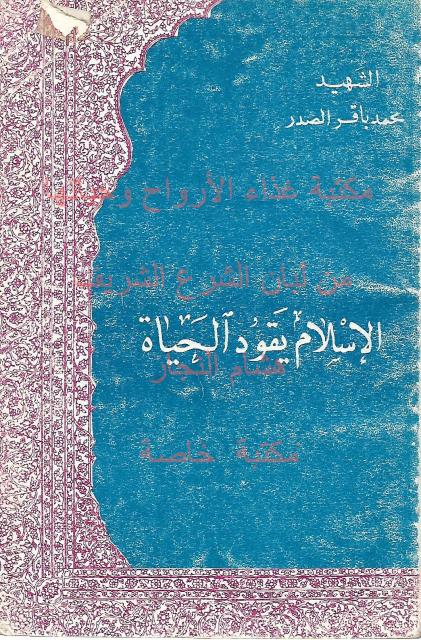 الشهيد
محمد باقر الصدر
مكتبة غذاء الأرواح وحياتها
من لبان الشرع الشريف
الإسلام يقود الحياة
هشام النجار
مكتبة خاصة